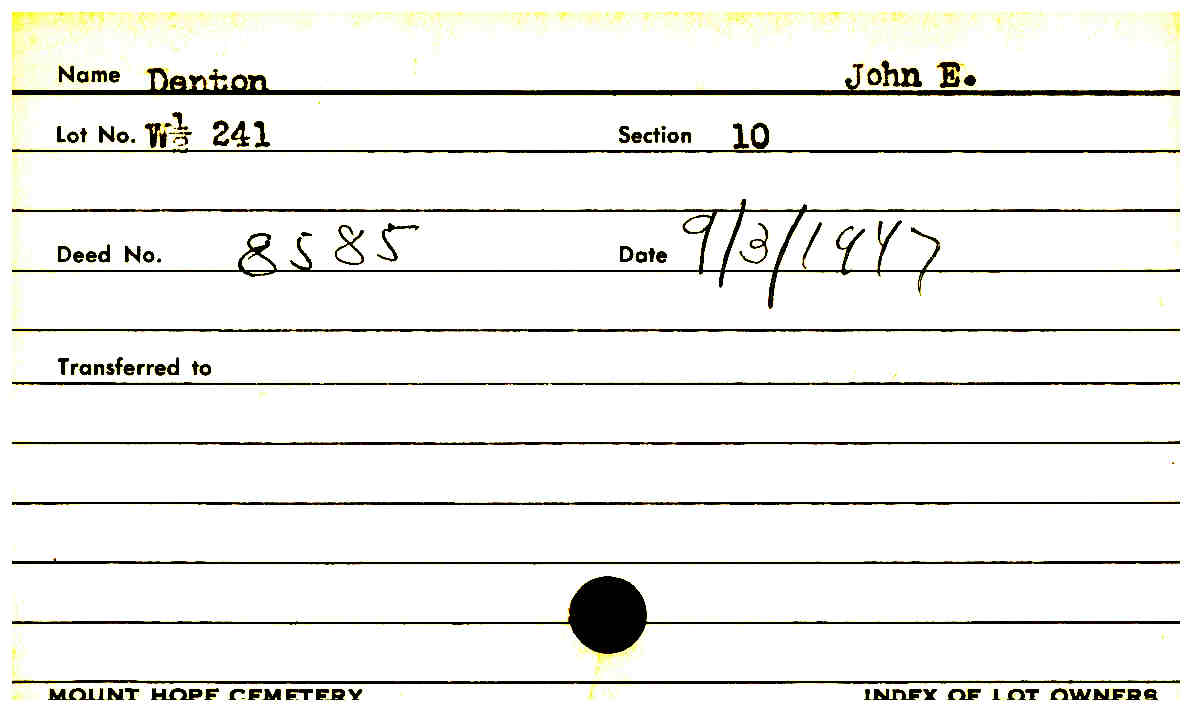 Name Denton John E.
Lot No. W½ 241 Section 10
Deed No. 8585 Date 9/3/1947
Transferred to
MOUNT HOPE CEMETERY INDEX OF LOT OWNERS